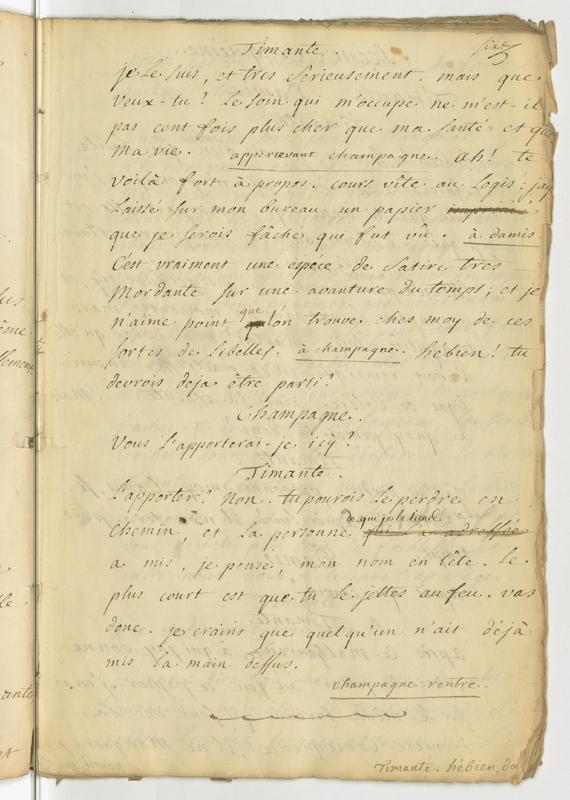 Timante.
je le suis, et tres serieusement. mais que
veux-tu? le soin qui m'occupe ne m'est-il
pas cent fois plus cher que ma santé et que
ma vie. appercevant champagne. ah! te
voilà fort à propos. cours vîte au logis: j'ay
laissé sur mon bureau un papier
que je serois fâché qui fut vû. à damis.
C'est vraiment une espece de satire très
mordante sur une avanture du temps; et je
n'aime point que l'on trouve chez moy de ces
sortes de libelles. à champagne. hébien! tu
devrois deja être parti?
Champagne.
Vous l'apporterai-je icÿ?
Timante.
L'apporter? Non. tu pourois le perdre en
chemin, et la personne de qui je le tiens
a mis, je pense, mon nom en tête. Le
plus court est que tu le jettes au feu. vas
donc. je crains que quelqu'un n'ait déjà
mis la main dessus.
champagne rentre.
Timante. hébien, da